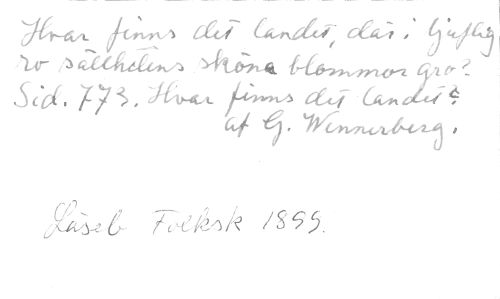 Hvar finns det landet, där i ljuflig
ro sällhetens sköna blommor gro?
Sid. 773. Hvar finns det landet?
af G. Wennerberg.
Läseb Folksk 1899.